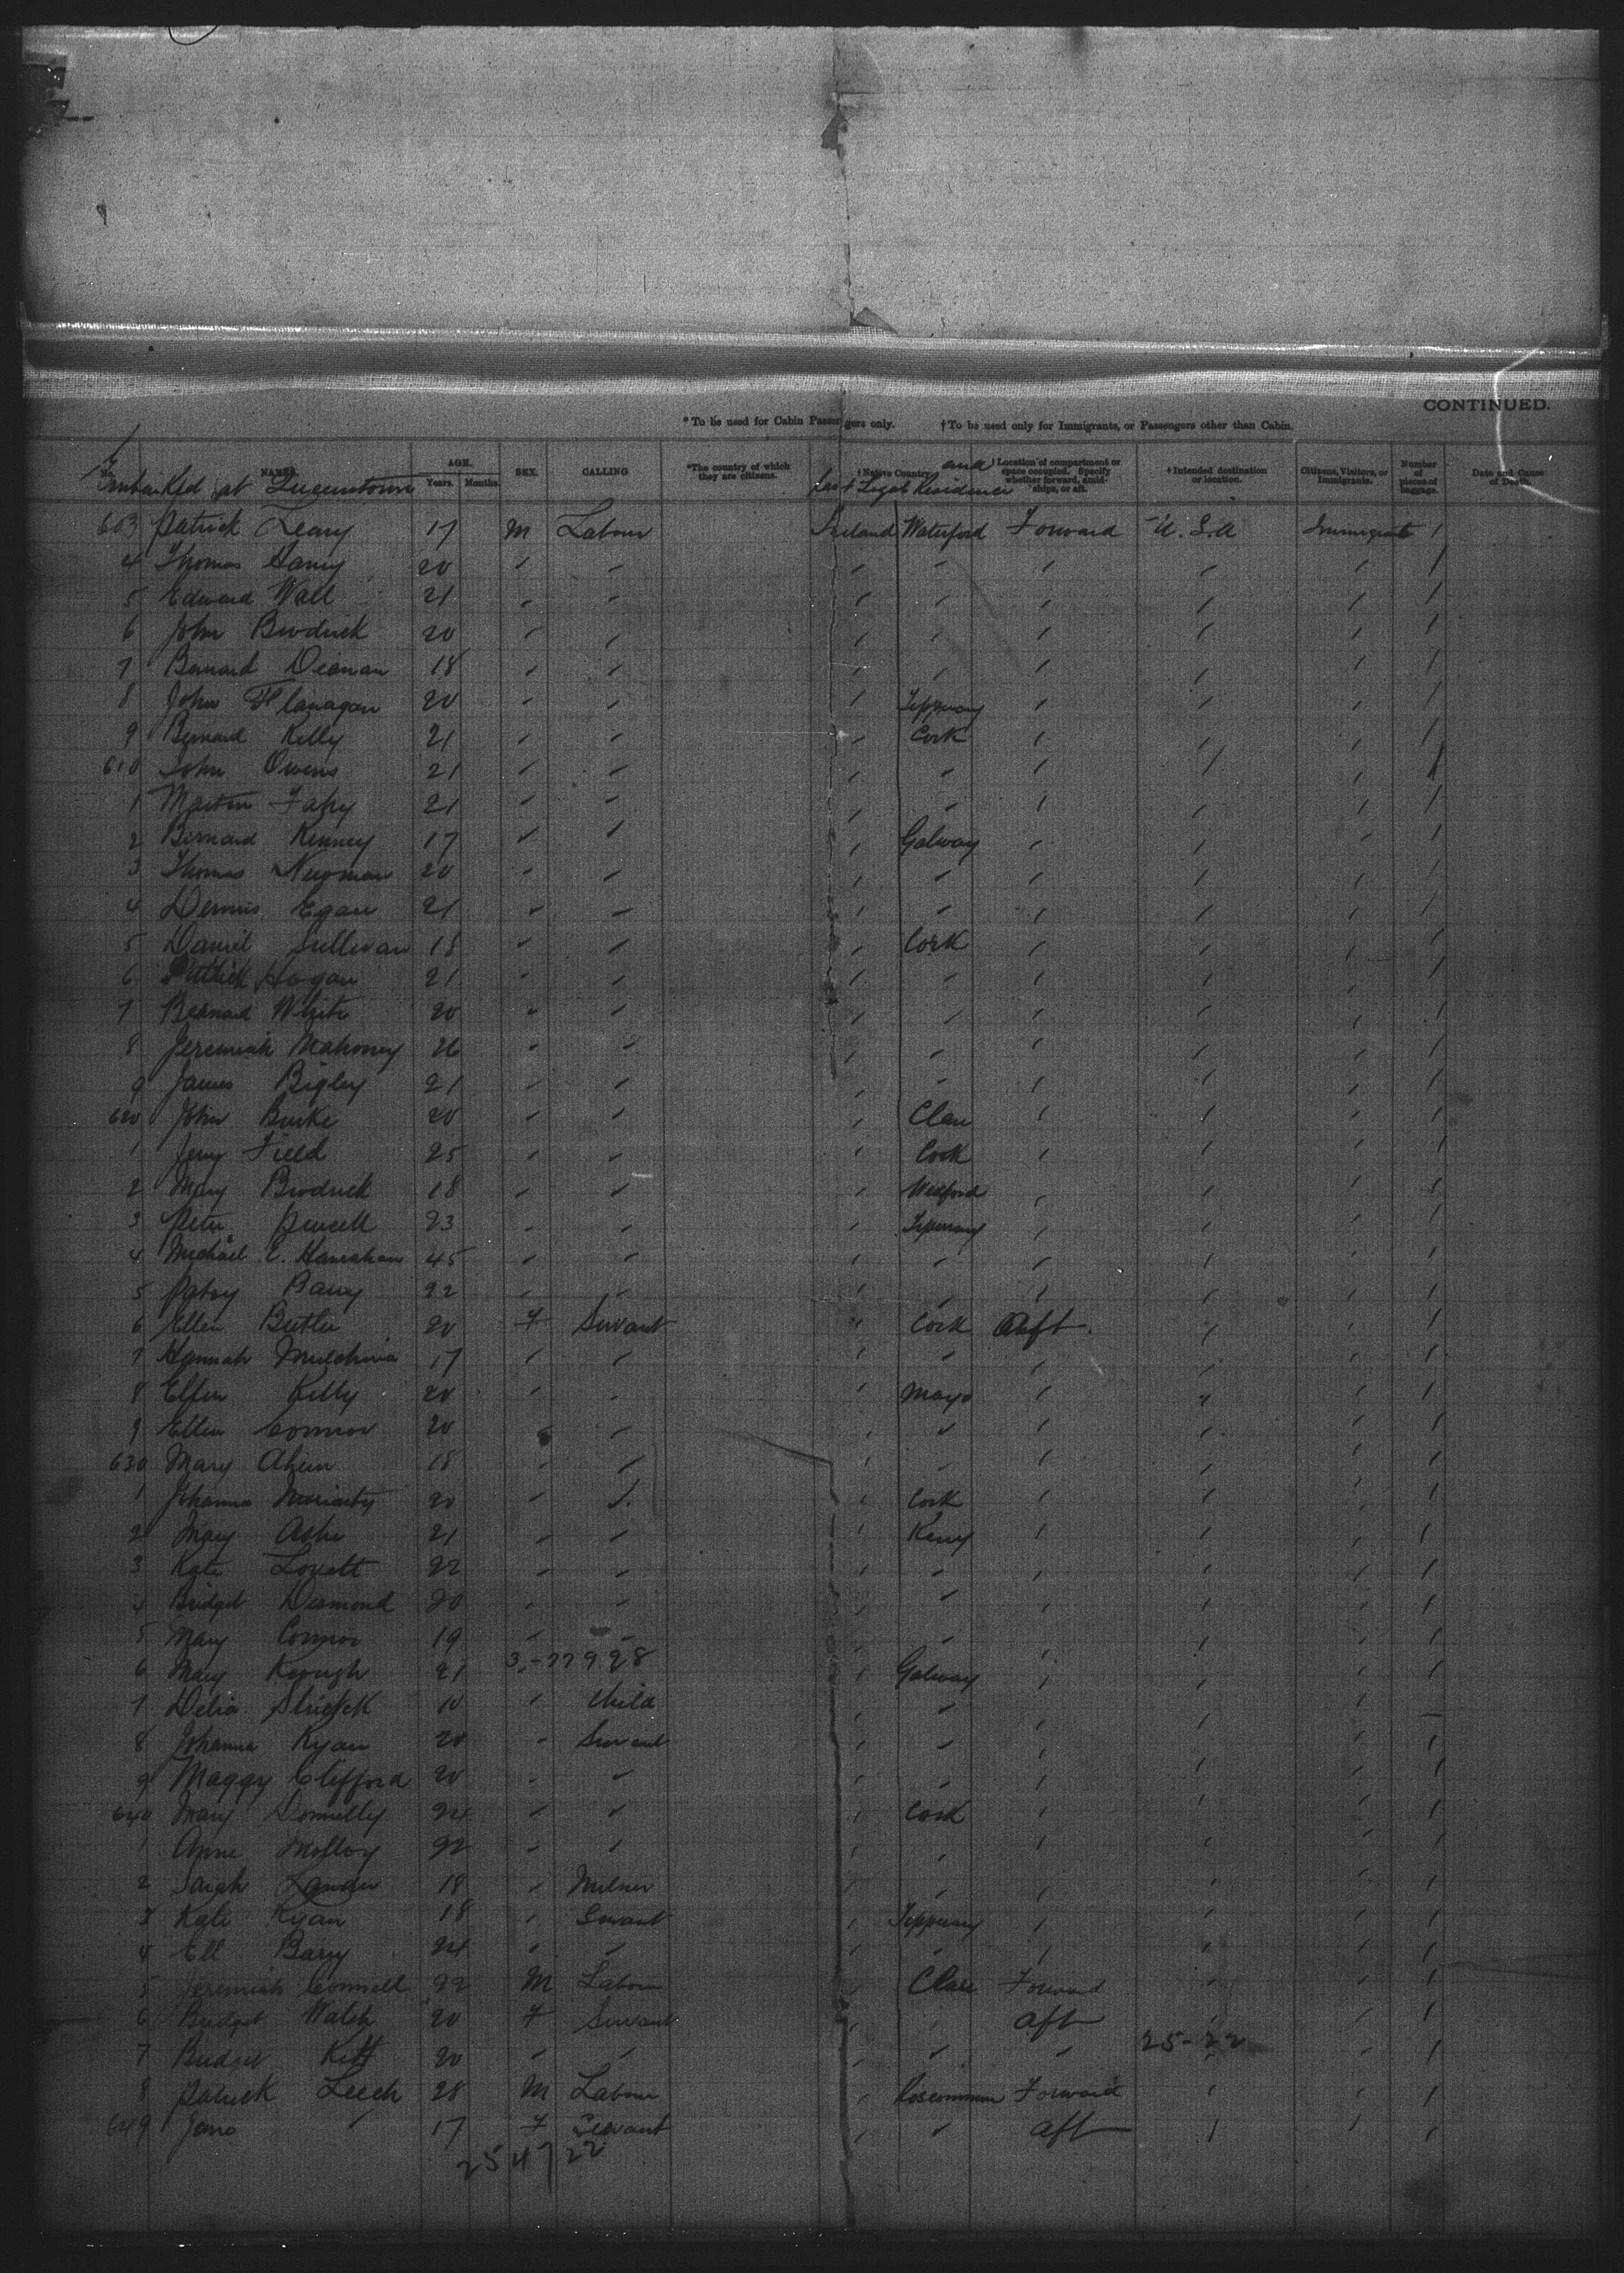 CONTINUED.
*To be used for Cabin Passengers only. †To be used only for Immigrants, or Passengers other than Cabin.
No. NAMES. AGE. Years. Months. SEX. CALLING *The country of which they are citizens. †Native Country and Last Legal Residence †Location of compartment or space occupied. Specify whether forward, amidships, or aft. †Intended destination or location. Citizens, Visitors, or Immigrants. Number of pieces of luggage. Date and Cause of Death.
Embarked at Queenstown
603 Patrick Leary 17 M Labour Ireland Waterford Forward U.S.A Immigrant 1
4 Thomas 20 " " " " " " " 1
5 Edward Wall 21 " " " " " " " 1
6 John Brodrick 20 " " " " " " " 1
7 Bernard 18 " " " " " " " 1
8 John Flanagan 20 " " " Tipperary " " " 1
9 Bernard Kelly 21 " " " Cork " " " 1
610 John Owens 21 " " " " " " " 1
1 Martin Fahy 21 " " " " " " " 1
2 Bernard Kenney 17 " " " Galway " " " 1
3 Thomas Newman 20 " " " " " " " 1
4 Dennis Egan 21 " " " " " " " 1
5 Daniel Sullivan 18 " " " Cork " " " 1
6 Patrick Hogan 21 " " " " " " " 1
7 Bernard White 20 " " " " " " " 1
8 Jeremiah Mahoney 26 " " " " " " " 1
9 James Bigley 21 " " " " " " " 1
620 John Burke 20 " " " Clare " " " 1
1 Jerry Field 25 " " " Cork " " " 1
2 Mary Brodrick 18 " " " Wexford " " " 1
3 Peter Purcell 23 " " " Tipperary " " " 1
4 Michael E. Hanrahan 45 " " " " " " " 1
5 Patsy Barry 22 " " " " " " " 1
6 Ellen Butler 20 F Servant " Cork Aft. " " 1
7 Hannah 17 " " " " " " " 1
8 Ellen Kelly 20 " " " Mayo " " " 1
9 Ellen Connor 20 " " " " " " " 1
630 Mary Ahern 18 " " " " " " " 1
1 Johanna Moriarty 20 " " " Cork " " " 1
2 Mary Ashe 21 " " " Kerry " " " 1
3 Kate Lovett 22 " " " " " " " 1
4 Bridget Desmond 20 " " " " " " " 1
5 Mary Connor 19 " " " " " " " 1
6 Mary Keough 21 3-77928 " Galway " " " 1
7 Delia 10 " Child " " " " " —
8 Johanna Ryan 20 " Servant " " " " " 1
9 Maggy Clifford 20 " " " " " " " 1
640 Mary Donnelly 24 " " " Cork " " " 1
1 Anne Molloy 22 " " " " " " " 1
2 Sarah 18 " Milner " " " " " 1
3 Kate Ryan 18 " Servant " Tipperary " " " 1
4 Ell Barry 24 " " " " " " " 1
5 Jeremiah Connell 22 M Labour " Clare Forward " " 1
6 Bridget Walsh 20 F Servant " " aft " " 1
25-22
7 Bridget Kitt 20 " " " " " " " 1
8 Patrick Leech 28 M Labour " Roscommon Forward " " 1
649 Jane " 17 F Servant " " aft " " 1
25 47 22